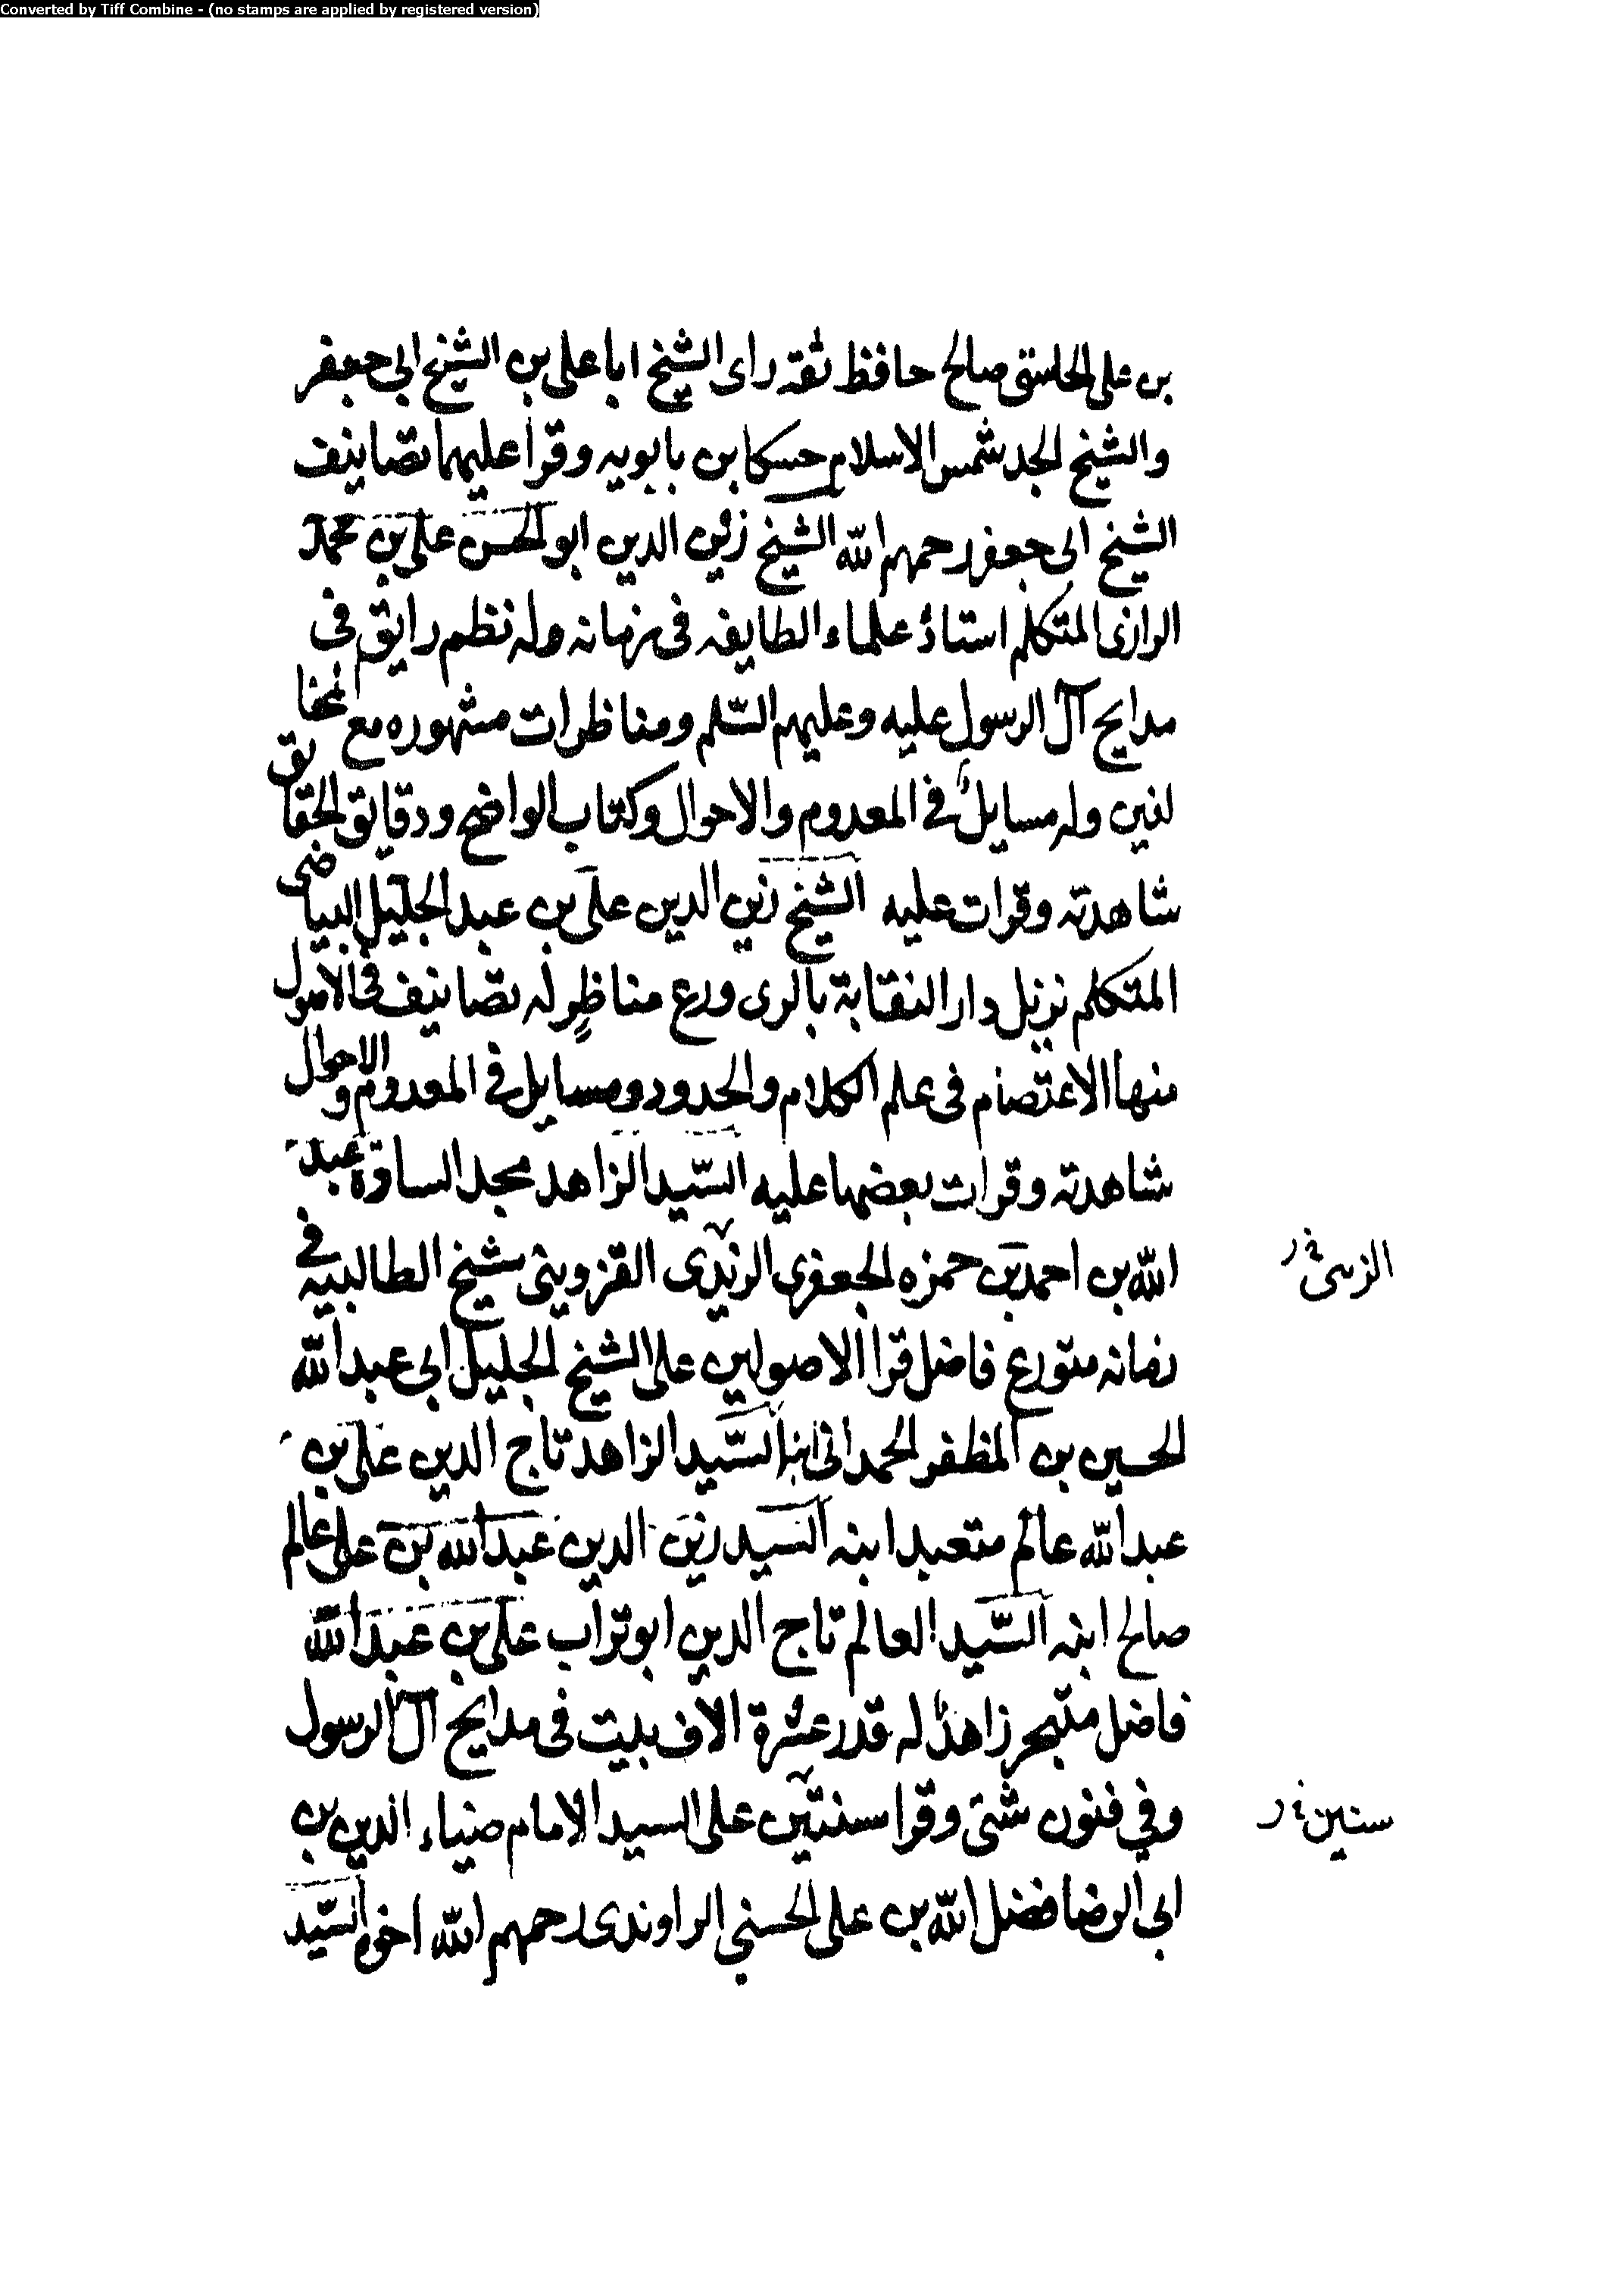 Converted by Tiff Combine - (no stamps are applied by registered version)
بن على الجاستى صالح حافظ ثقه راى الشيخ ابا على بن الشيخ ابى جعفر
والشيخ الجد شمس الاسلام حسكا بن بابويه وقرا عليهما تصانيف
الشيخ ابى جعفر رحمهم الله الشيخ زين الدين ابو الحسن على بن محمد
الرازى المتكلم استاذ علماء الطايفه فى زمانه وله نظم رايق فى
مدايح آل الرسول عليه وعليهم السّلم ومناظرات مشهوره مع المخا
لفين وله مسايل فى المعدوم والاحوال وكتاب الواضح ودقايق الحقايق
شاهدته وقرات عليه الشيخ زين الدين على بن عبد الجليل البياضى
المتكلم نزيل دار النقابة بالرى ورع مناظر له تصانيف فى الاصول
منها الاعتصام فى علم الكلام والحدود ومسايل فى المعدوم والاحوال
شاهدته وقرات بعضها عليه السّيد الزاهد مجد السادة عبد
الله بن احمد بن حمزه الجعفرى الزيدى القزوينى شيخ الطالبيه فى
زمانه متورع فاضل قرا الاصولين على الشيخ الجليل ابى عبد الله
الحسين بن المظفر الحمدانى ابنه السّيد الزاهد تاج الدين على بن
عبد الله عالم متعبد ابنه السيد زين الدين عبد الله بن على عالم
صالح ابنه السّيد العالم تاج الدين ابو تراب على بن عبد الله
فاضل متبحر زاهد له قدر عشرة الاف بيت فى مدايح آل الرسول
وفي فنون شتى وقرا سنتين على السيد الامام ضياء الدين بن
ابى الرضا فضل الله بن على الحسني الراوندى رحمهم الله اخوه السّيد
سنين